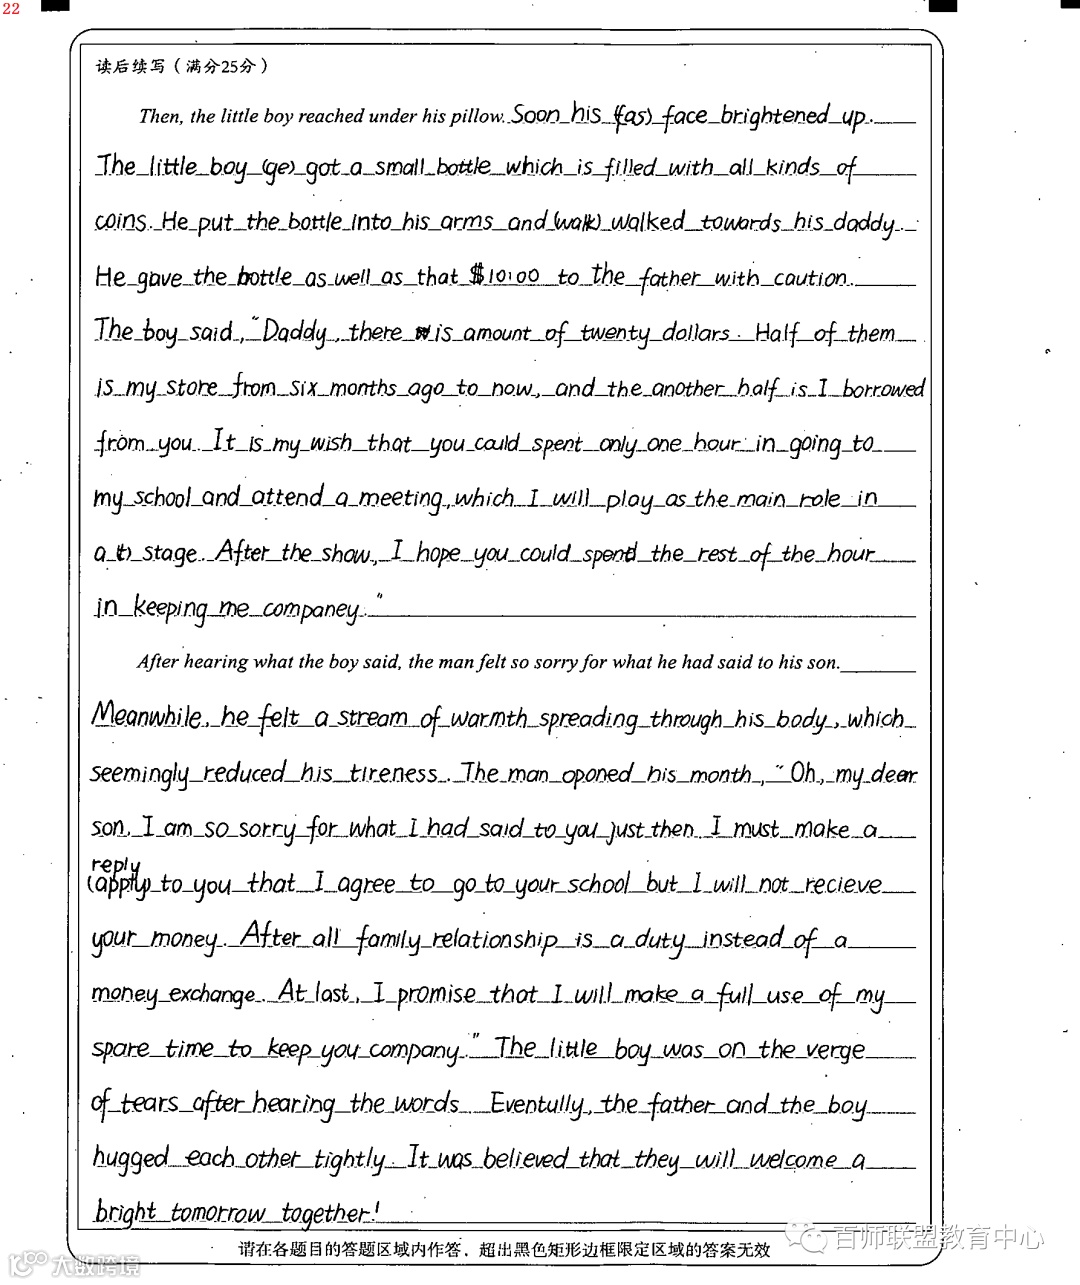 22
读后续写（满分25分）
Then, the little boy reached under his pillow. Soon his (fas) face brightened up.
The little boy (ge) got a small bottle which is filled with all kinds of
coins. He put the bottle into his arms and (walk) walked towards his daddy.
He gave the bottle as well as that $10:00 to the father with caution.
The boy said, "Daddy, there is amount of twenty dollars. Half of them
is my store from six months ago to now, and the another half is I borrowed
from you. It is my wish that you could spent only one hour in going to
my school and attend a meeting, which I will play as the main role in
a (t) stage. After the show, I hope you could spend the rest of the hour
in keeping me companey."
After hearing what the boy said, the man felt so sorry for what he had said to his son.
Meanwhile, he felt a stream of warmth spreading through his body, which
seemingly reduced his tireness. The man oponed his month, "Oh, my dear
son, I am so sorry for what I had said to you just then. I must make a
reply
(apply) to you that I agree to go to your school but I will not recieve
your money. After all family relationship is a duty instead of a
money exchange. At last, I promise that I will make a full use of my
spare time to keep you company." The little boy was on the verge
of tears after hearing the words. Eventully, the father and the boy
hugged each other tightly. It was believed that they will welcome a
bright tomorrow together!
请在各题目的答题区域内作答，超出黑色矩形边框限定区域的答案无效
百师联盟教育中心
大数跨境